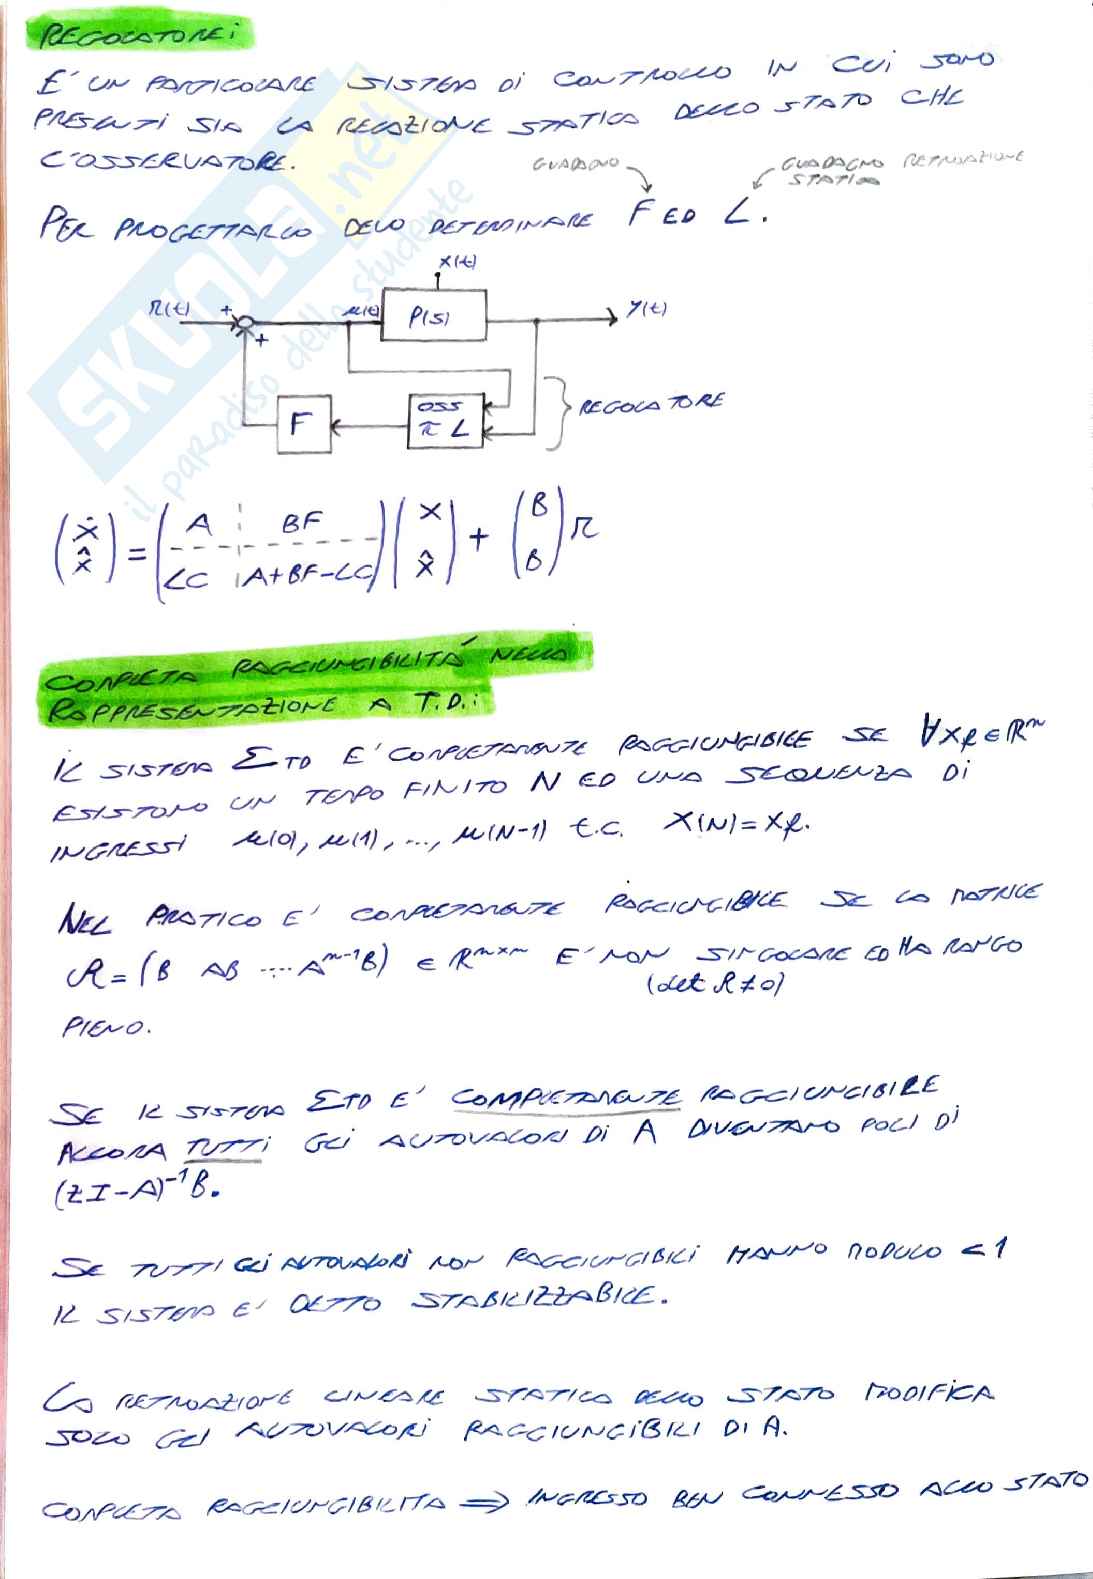 REGOLATORE:
E' UN PARTICOLARE SISTEMA DI CONTROLLO IN CUI SONO
PRESENTI SIA LA REAZIONE STATICA DELLO STATO CHE
L'OSSERVATORE.
GUADAGNO
GUADAGNO RETROAZIONE
STATICA
PER PROGETTARLO DEVO DETERMINARE F ED L.
X(t)
R(t) + u(t) P(s) Y(t)
+
F OSS L
REGOLATORE
(ẋ x̂) = (A BF LC A+BF-LC)(x x̂) + (B B) r
COMPLETA RAGGIUNGIBILITÁ NELLA
RAPPRESENTAZIONE A T.D.:
IL SISTEMA ΣTD E' COMPLETAMENTE RAGGIUNGIBILE SE ∀Xf ∈ ℝⁿ
ESISTONO UN TEMPO FINITO N ED UNA SEQUENZA DI
INGRESSI u(0), u(1), ..., u(N-1) t.c. X(N)=Xf.
NEL PRATICO E' COMPLETAMENTE RAGGIUNGIBILE SE LA MATRICE
R = (B AB ... Aⁿ⁻¹B) ∈ ℝⁿˣⁿ E' NON SINGOLARE ED HA RANGO
(det R ≠ 0)
PIENO.
SE IL SISTEMA ΣTD E' COMPLETAMENTE RAGGIUNGIBILE
ALLORA TUTTI GLI AUTOVALORI DI A DIVENTANO POLI DI
(zI-A)⁻¹B.
SE TUTTI GLI AUTOVALORI NON RAGGIUNGIBILI HANNO MODULO <1
IL SISTEMA E' DETTO STABILIZZABILE.
LA RETROAZIONE LINEARE STATICA DELLO STATO MODIFICA
SOLO GLI AUTOVALORI RAGGIUNGIBILI DI A.
COMPLETA RAGGIUNGIBILITA ⇒ INGRESSO BEN CONNESSO ALLO STATO
SKUOLA.net
il paradiso dello studente